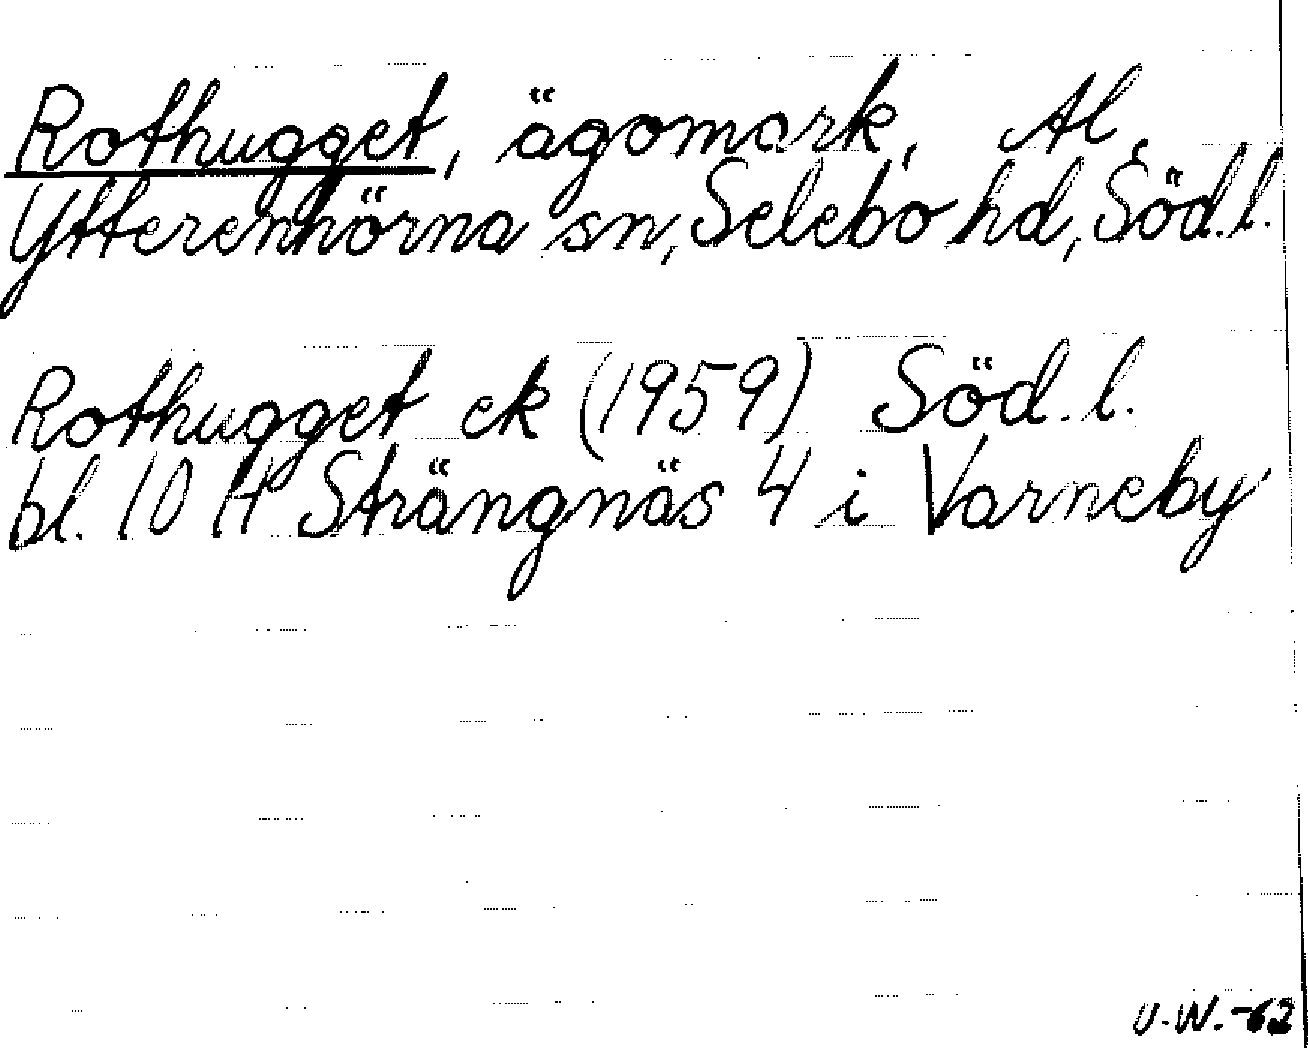 Rothugget, ägomark, Al,
Ytterenhörna sn, Selebo hd, Söd.l.
Rothugget ek (1959) Söd.l.
bl. 10 H Strängnäs 4 i Varneby
U.W.-62